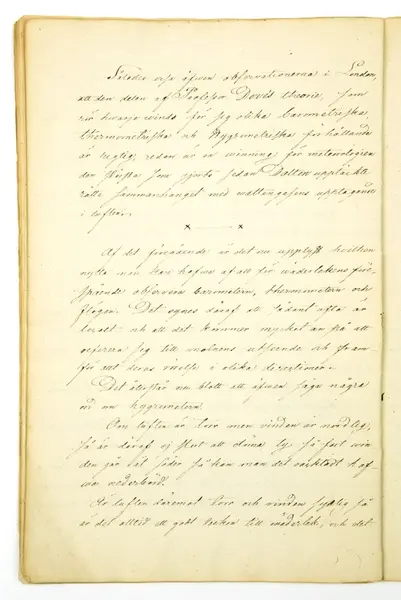 Således visa äfven observationerna i London,
att den delen af Professor Doves theorie, som
rör hvarje vinds för sig olika barometriska,
thermometriska och hygrometriska förhållande
är riktig, redan är en winning för meteorologien
den största som gjorts sedan Dalton upptäckte
rätta sammanhanget med wattengasens upptagande
i luften.
Af det föregående är det nu upplyst hvilken
nytta man kan hafva af att för väderlekens för
spående observera barometern, thermometern och
flöjeln. Det ognes däraf att sådant ofta är
och att det kommer mycket an på att
referera sig till molnens utseende och fram
för allt deras rörelse i olika directioner.
Det återstår nu blott att äfven säga några
ord om hygrometern.
Om luften är torr men vinden är nordlig,
så är däraf ej slut att döma ty så fort vin
den går åt söder så kan man det oaktadt haf
va nederbörd.
Är luften däremot torr och vinden sydlig så
är det alltid ett godt tecken till väderlek, och det